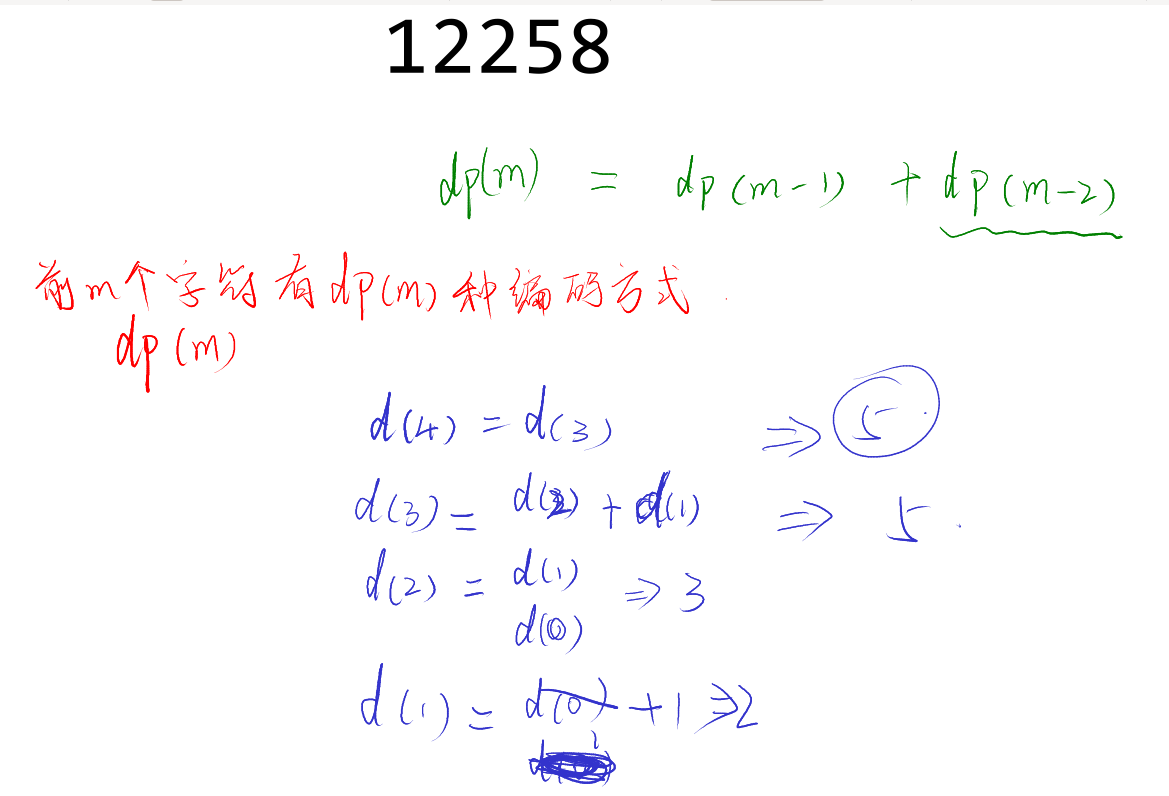 12258
dp(m) = dp(m-1) + dp(m-2)
前m个字符有dp(m)种编码方式.
dp(m)
d(4) = d(3) ⇒ 5
d(3) = d(2) + d(1) ⇒ 5.
d(2) = d(1) ⇒ 3
d(0)
d(1) = d(0) + 1 ⇒ 2